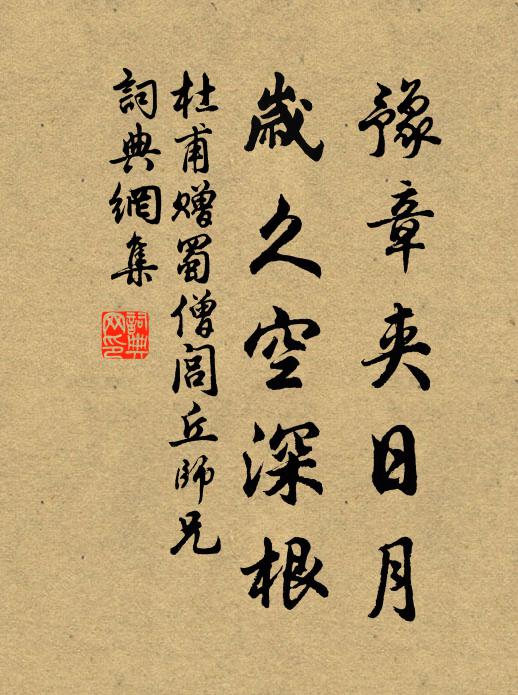 豫章夹日月
歲久空深根
杜甫赠蜀僧閭丘師兄
詞典網集
詞典网印